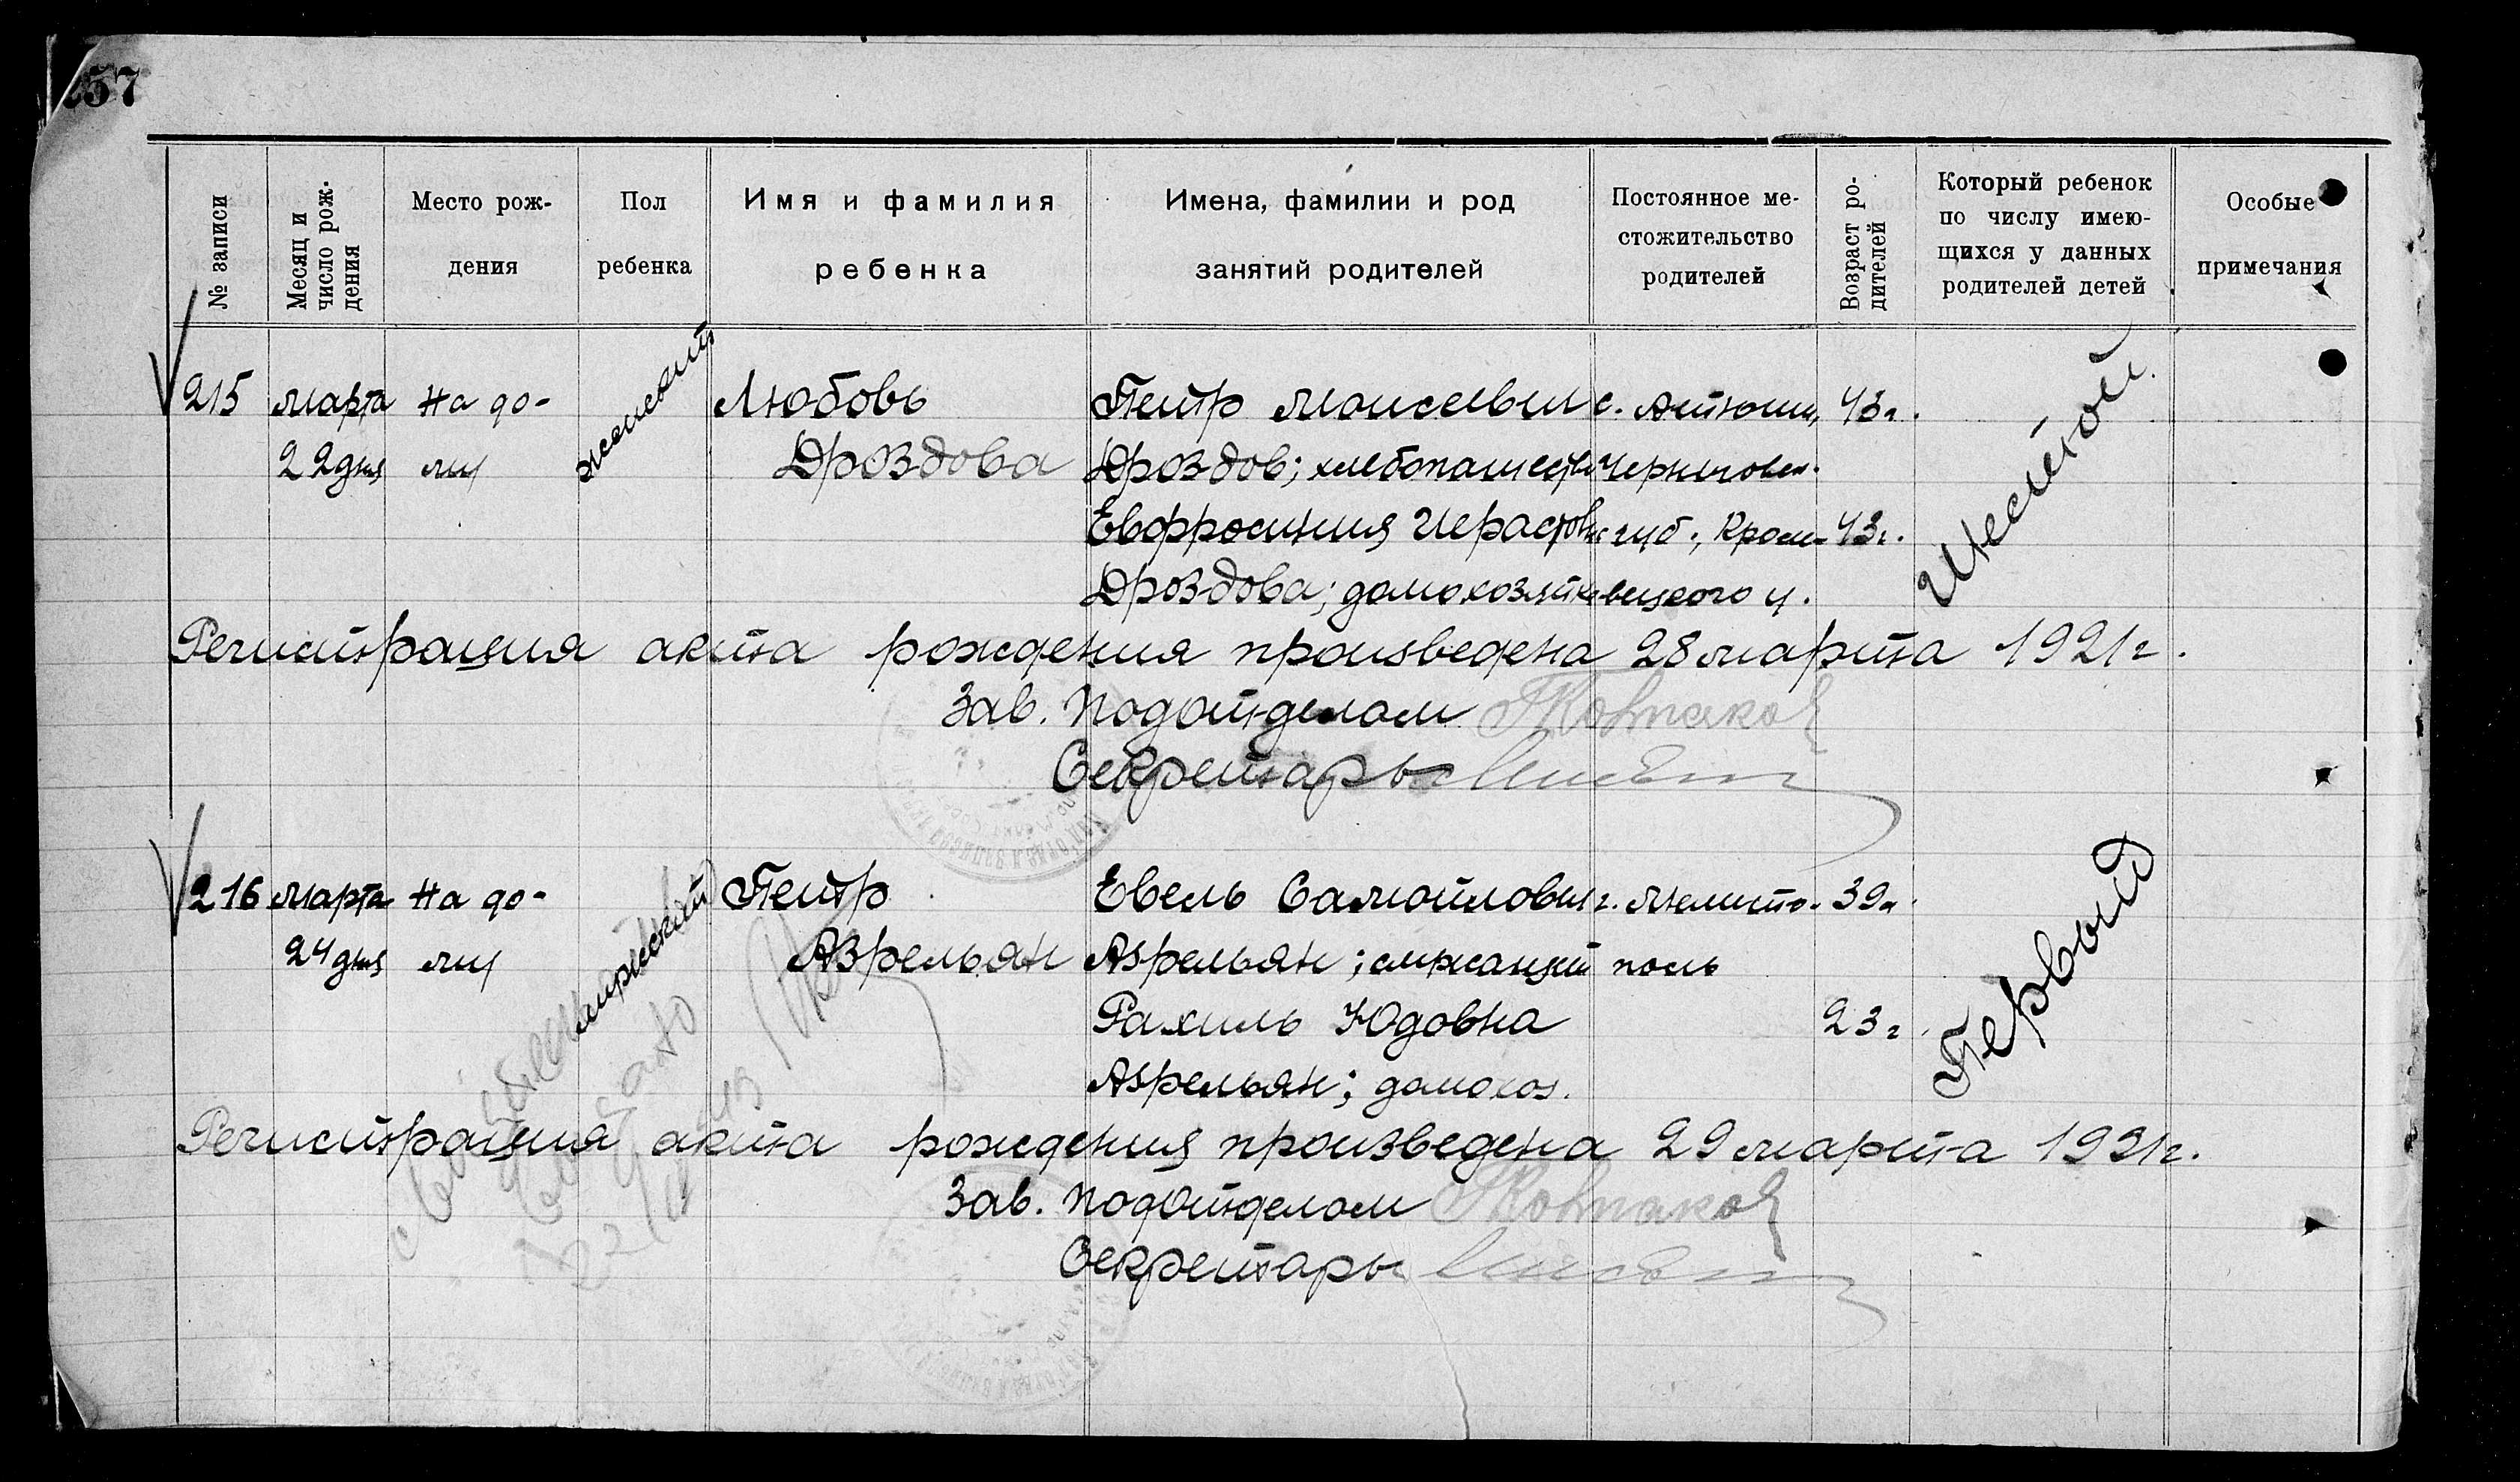 257
№ записи
Месяц и
число рож-
дения
Место рож-
дения
Пол
ребенка
Имя и фамилия
ребенка
Имена, фамилии и род
занятий родителей
Постоянное ме-
стожительство
родителей
Возраст ро-
дителей
Который ребенок
по числу имею-
щихся у данных
родителей детей
Особые
примечания
215
марта
22 дня
На до-
му
женский
Любовь
Дроздова
Петр Моисеевич
Дроздов; хлебопашеств
Евфросиния Иерастовн
Дроздова; домохозяйка
с.
Черниговск.
губ., Кроле-
вецкого у.
43 г.
43 г.
Шестой
Регистрация акта рождения произведена 28 марта 1921 г.
Зав. Подотделом
Секретарь
216
марта
24 дня
На до-
му
мужской
Петр
Азрельян
Евель Самойлович
Азрельян; служащий
Рахиль Юдовна
Азрельян; домохоз.
г. Мелито-
поль
39 л.
23 г.
Первый
Регистрация акта рождения произведена 29 марта 1921 г.
Зав. Подотделом
Секретарь